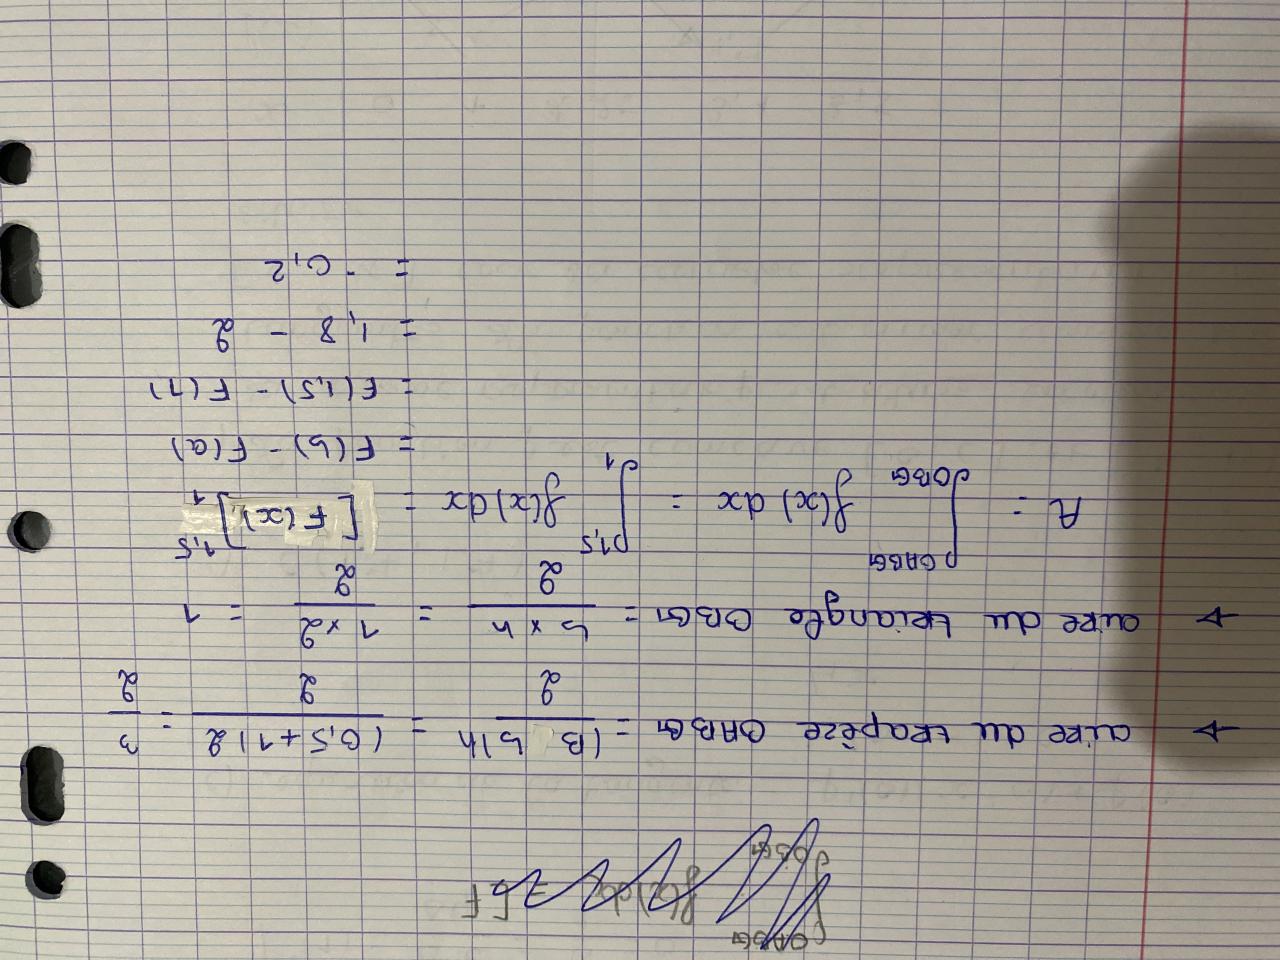 → aire du trapèze OABG = (B b)h / 2 = (0,5+1)2 / 2 = 3 / 2
→ aire du triangle OBG = b×h / 2 = 1×2 / 2 = 1
A = ∫_{OBG}^{OABG} f(x) dx = ∫_1^{1,5} f(x) dx = [F(x)]_1^{1,5}
= F(b) - F(a)
= F(1,5) - F(1)
= 1,8 - 2
= - 0,2